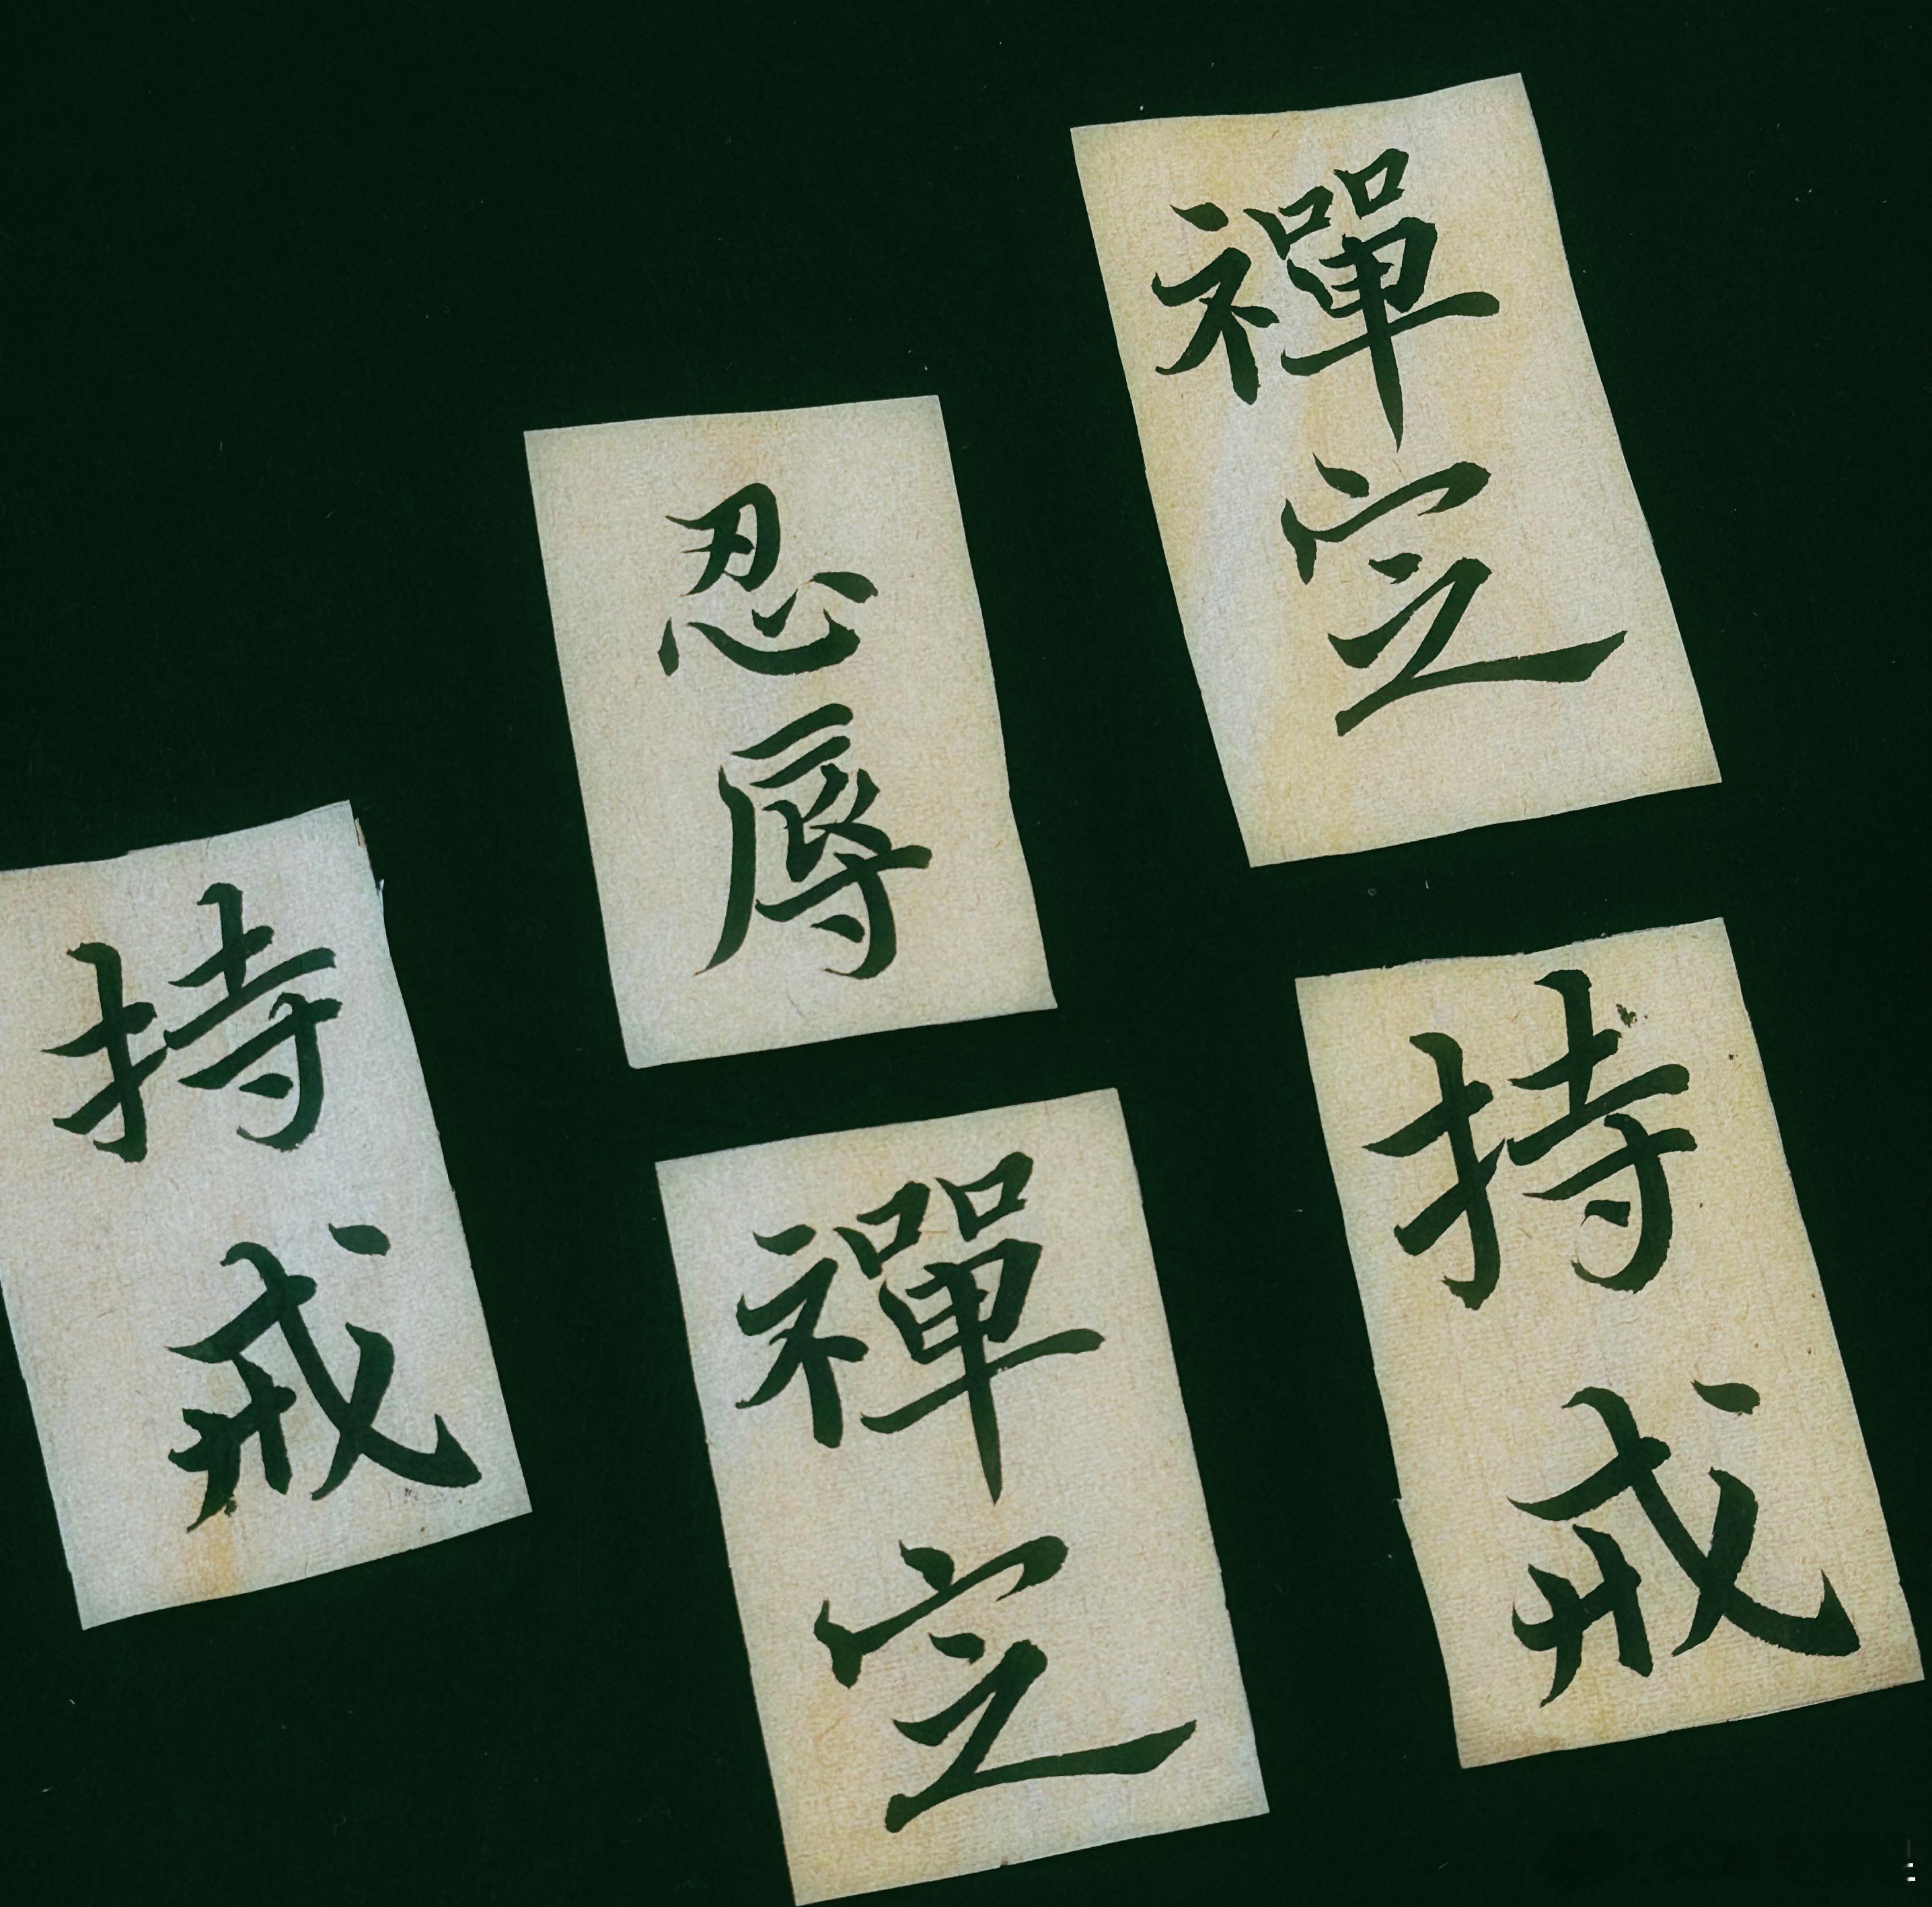 禪定
忍辱
持戒
持戒
禪定